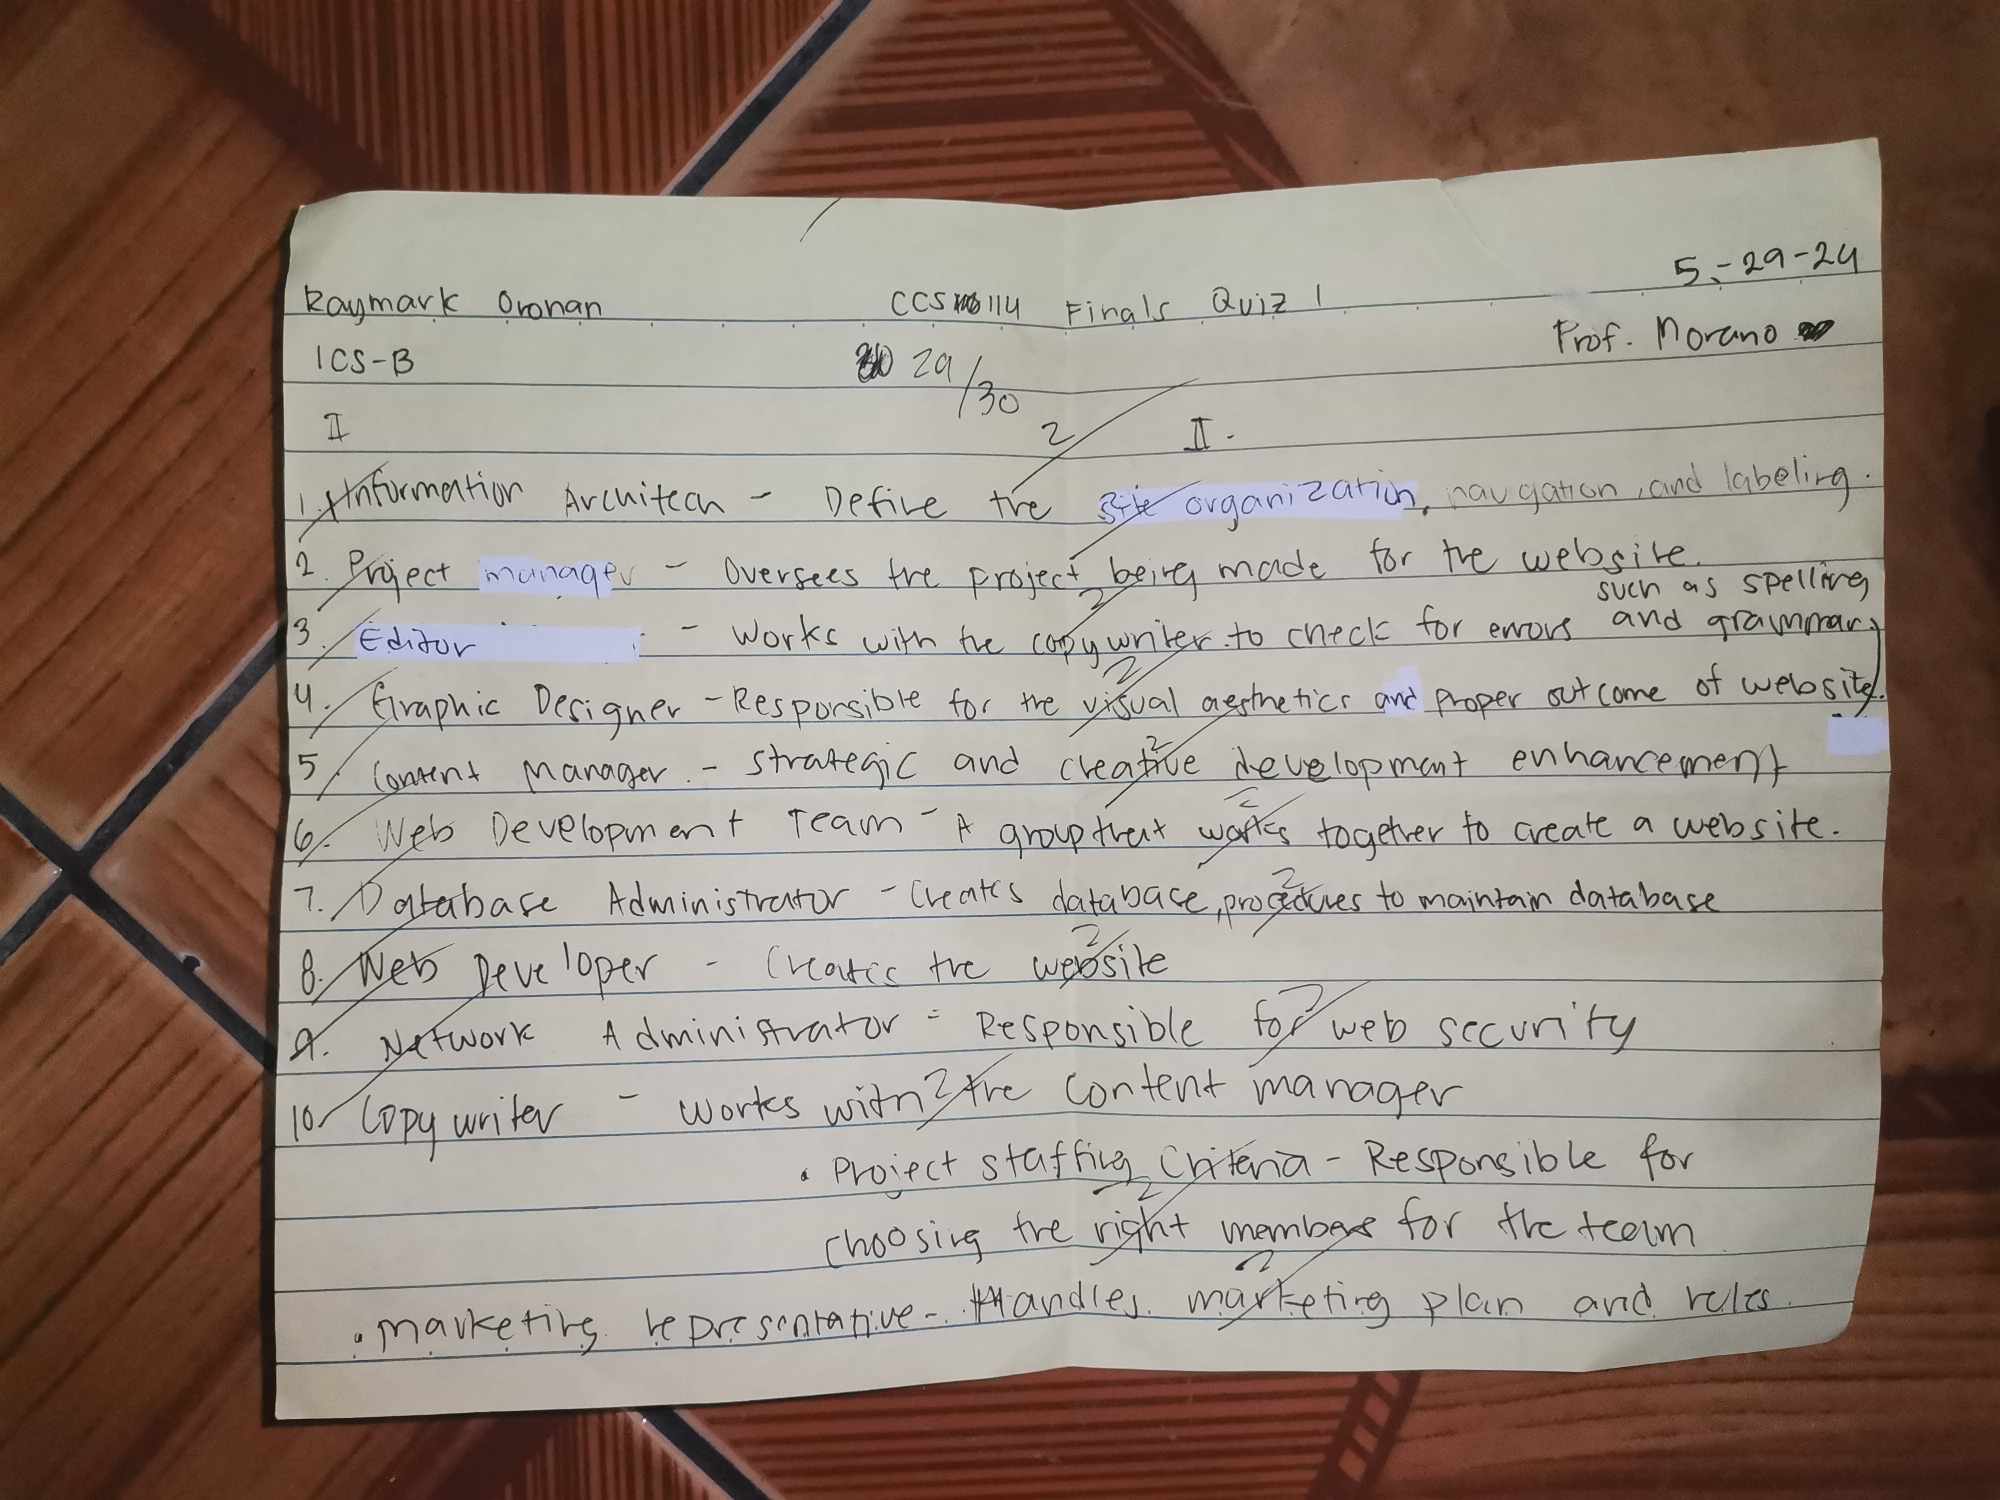 Raymark Oronan CCS 114 Finals Quiz 1 5-29-24
1CS-B 29/30 Prof. Morano
II 2 II.
1. Information Architech - Define the Site organization, navigation, and labeling.
2. Project manager - Oversees the project being made for the website.
such as spelling
3. Editor - Works with the copywriter to check for errors and grammar
4. Graphic Designer - Responsible for the visual aesthetics and proper outcome of website.
5. Content Manager. - Strategic and creative development enhancement
6. Web Development Team - A group that works together to create a website.
7. Database Administrator - Creates database, procedures to maintain database
8. Web Developer - Creates the website
9. Network Administrator - Responsible for web security
10. Copywriter - works with the content manager
• Project staffing Criteria - Responsible for
choosing the right members for the team
• Marketing representative - Handles marketing plan and rules.